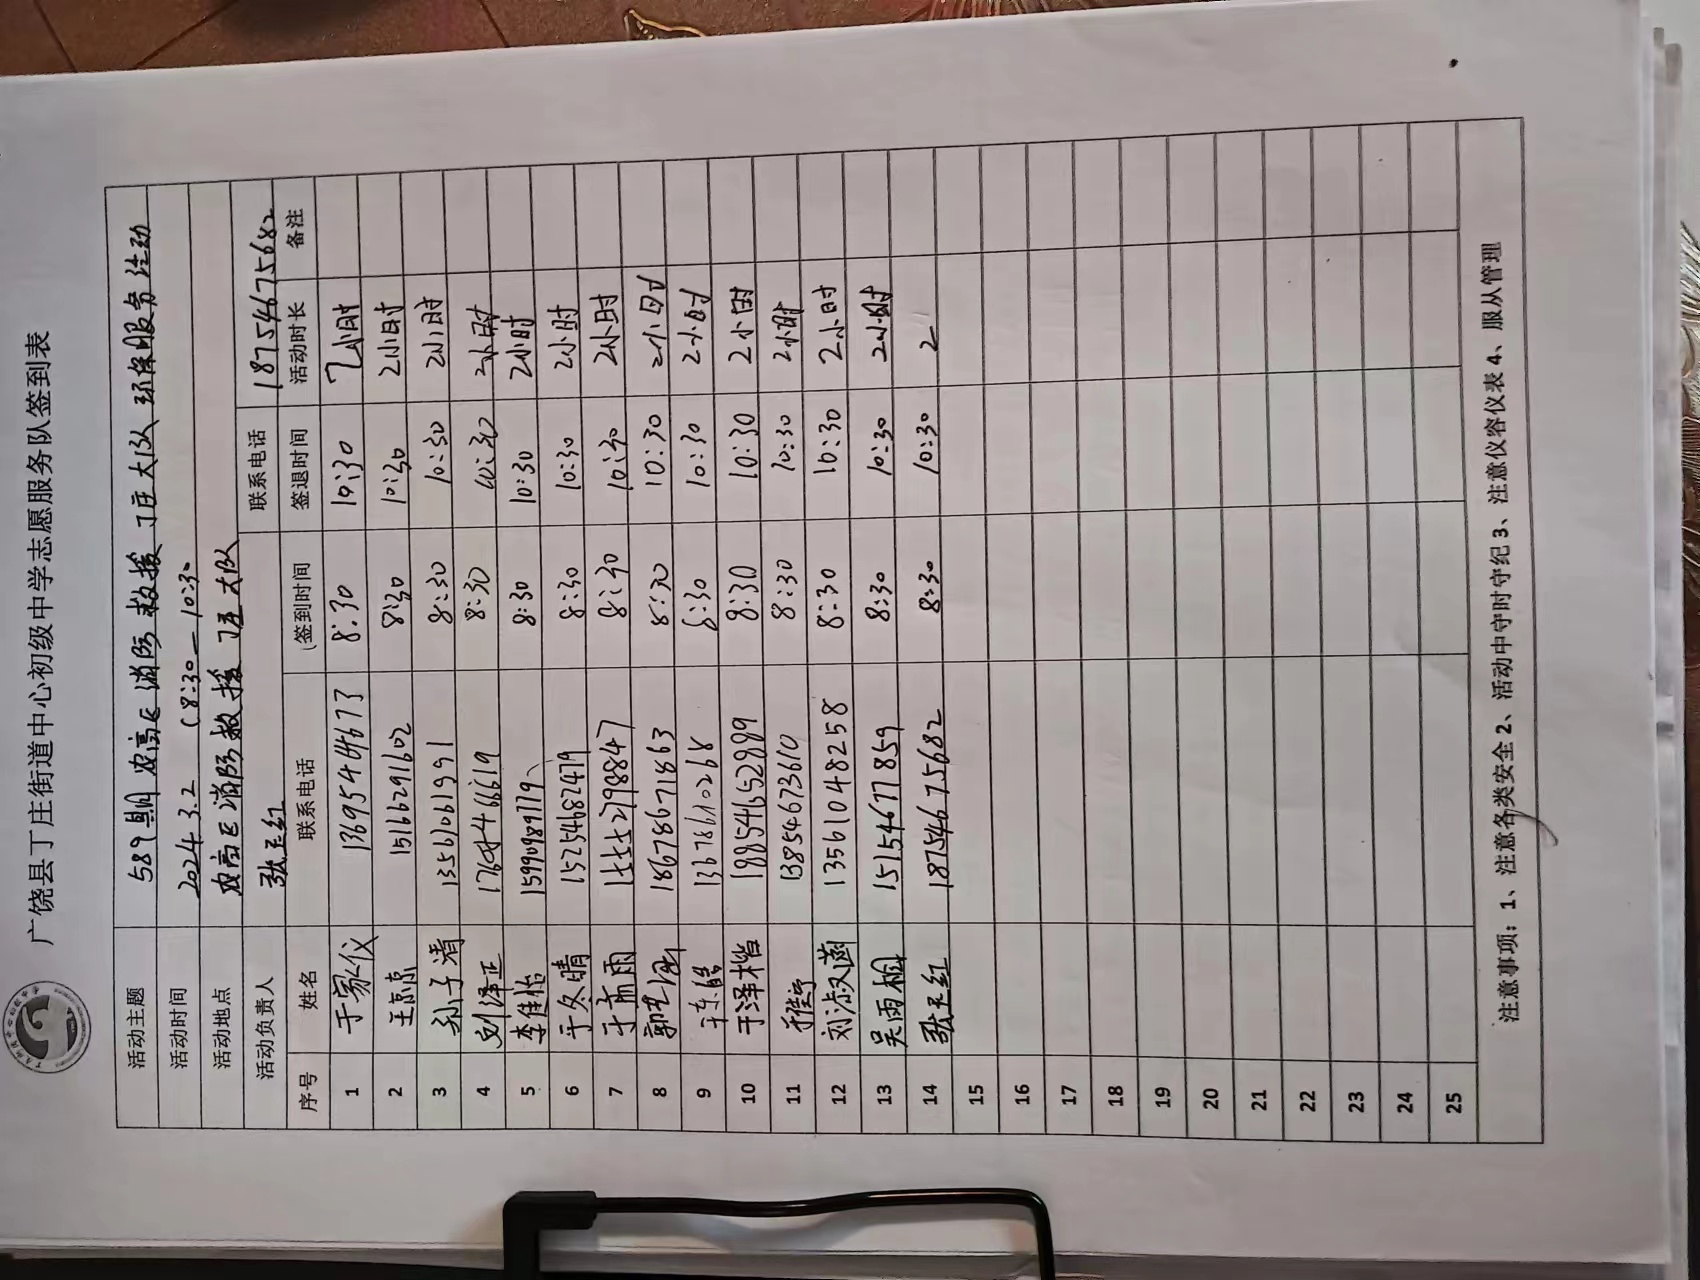 广饶县丁庄街道中心初级中学志愿服务队签到表
活动主题 589期农高区消防救援丁庄大队环保服务活动
活动时间 2024.3.2 (8:30—10:30
活动地点 农高区消防救援丁庄大队
活动负责人 张玉红 联系电话 18754675682
序号 姓名 联系电话 (签到时间 签退时间 活动时长 备注
1 于家仪 13695464673 8:30 10:30 2小时
2 王京京 15166291602 8:30 10:30 2小时
3 孙子清 13561061991 8:30 10:30 2小时
4 刘泽正 8:30 10:30 2小时
5 李佳怡 15990989779 8:30 10:30 2小时
6 于冬晴 15254682479 8:30 10:30 2小时
7 于孟雨 15552798847 8:30 10:30 2小时
8 18678671863 8:30 10:30 2小时
9 13678610268 8:30 10:30 2小时
10 于泽楷 18854652889 8:30 10:30 2小时
11 13854673610 8:30 10:30 2小时
12 刘淑菡 13561048258 8:30 10:30 2小时
13 吴雨桐 15154677859 8:30 10:30 2小时
14 张玉红 18754675682 8:30 10:30 2
15
16
17
18
19
20
21
22
23
24
25
注意事项：1、注意各类安全2、活动中守时守纪3、注意仪容仪表4、服从管理